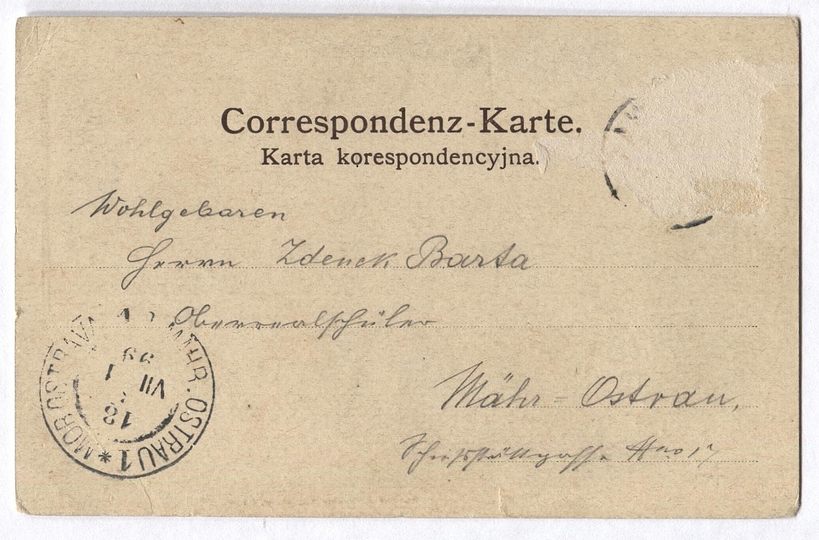 Correspondenz-Karte.
Karta korespondencyjna.
Wohlgebaren
Herrn Zdenek Barta
Oberrealschüler
Mähr=Ostrau,
Schießstättgasse
MÄHR. OSTRAU 1 * MOR. OSTRAVA
18
VII 1
99